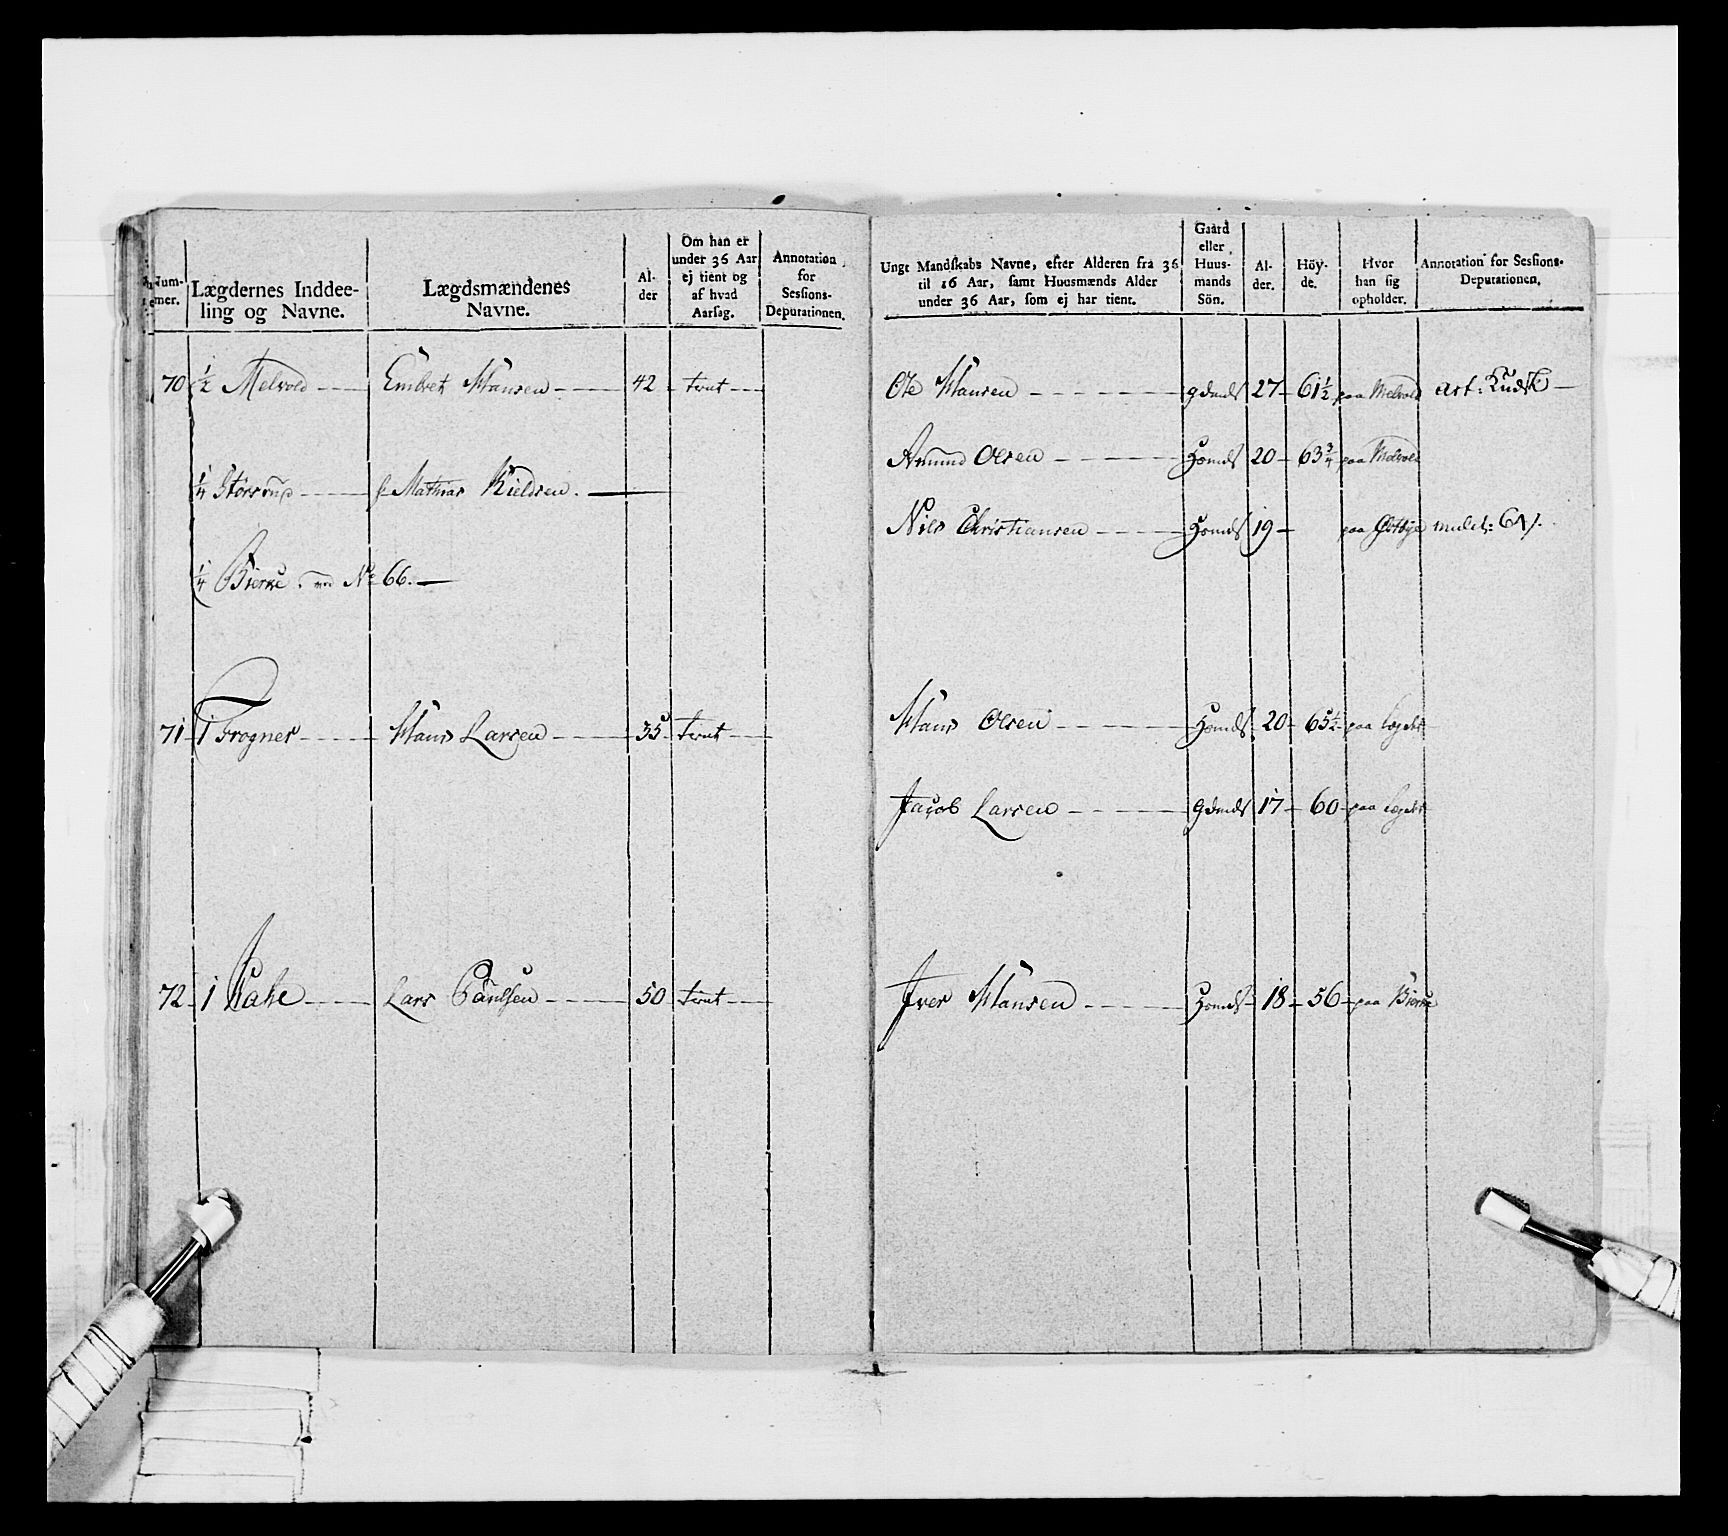 Num-
mer.
Lægdernes Inddee-
ling og Navne.
Lægdsmændenes
Navne.
Al-
der
Om han er
under 36 Aar
ej tient og
af hvad
Aarsag.
Annotation
for
Sessions-
Deputationen.
70 1/2 Melvold Embret Hansen 42 tient
1/4 Störsrud Mathias Kieldsen.
1/4 Bierke No 66.
71 1 Frogner Hans Larsen 35 tient
72 1 Hahe Lars Paulsen 50 tient
Ungt Mandskabs Navne, efter Alderen fra 36
til 16 Aar, samt Huusmænds Alder
under 36 Aar, som ej har tient.
Gaard
eller
Huus-
mands
Sön.
Al-
der.
Höy-
de.
Hvor
han sig
opholder.
Annotation for Sessions-
Deputationen.
Ole Hansen gdmds 27 61 1/2 paa Melvold art: Kudsk
Amund Olsen Hsmds 20 63 3/4 paa Melvold
Nils Christiansen Hsmds 19 paa
Hans Olsen Hsmds 20 65 1/2 paa Lægdet
Jacob Larsen gdmds 17 60 paa Lægdet
Iver Hansen Hsmds 18 56 paa Bierke